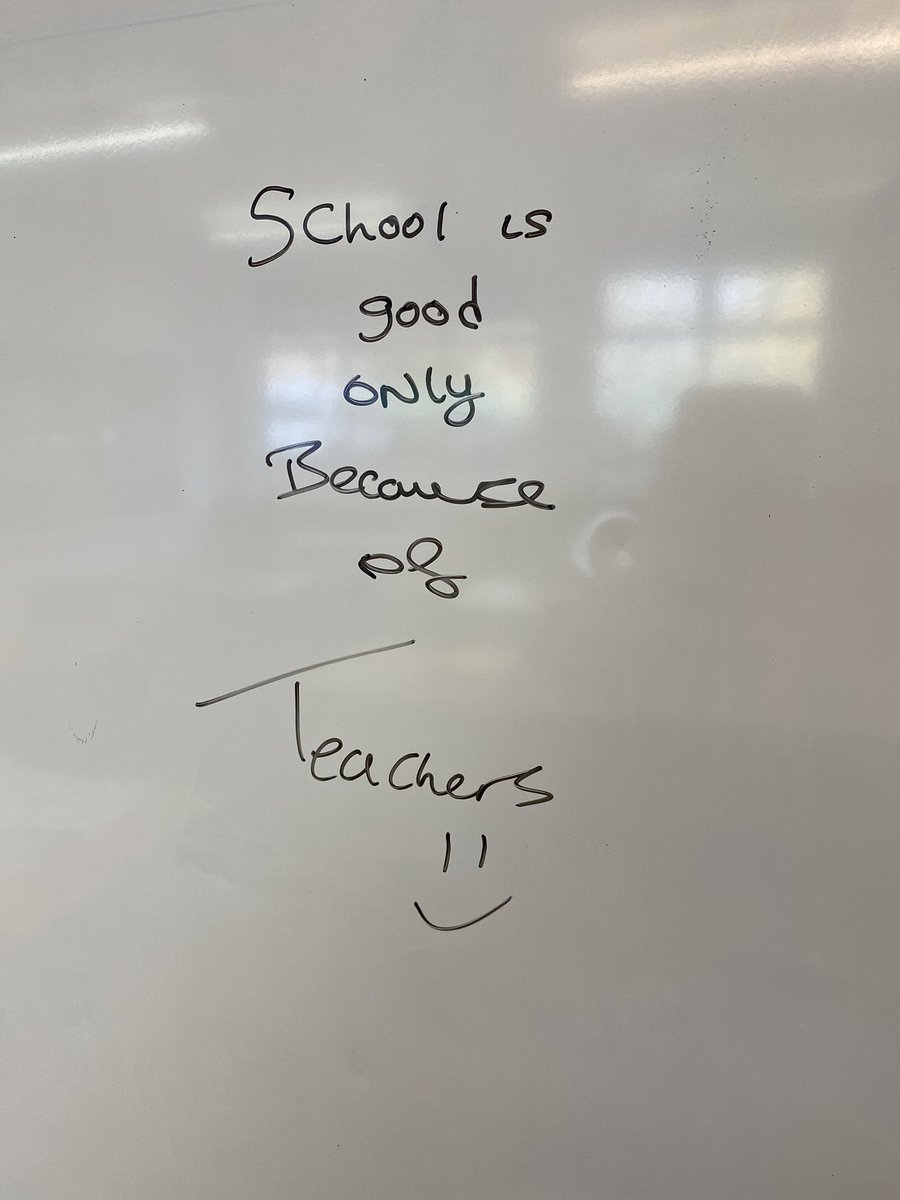 School is
good
only
Because
of
Teachers